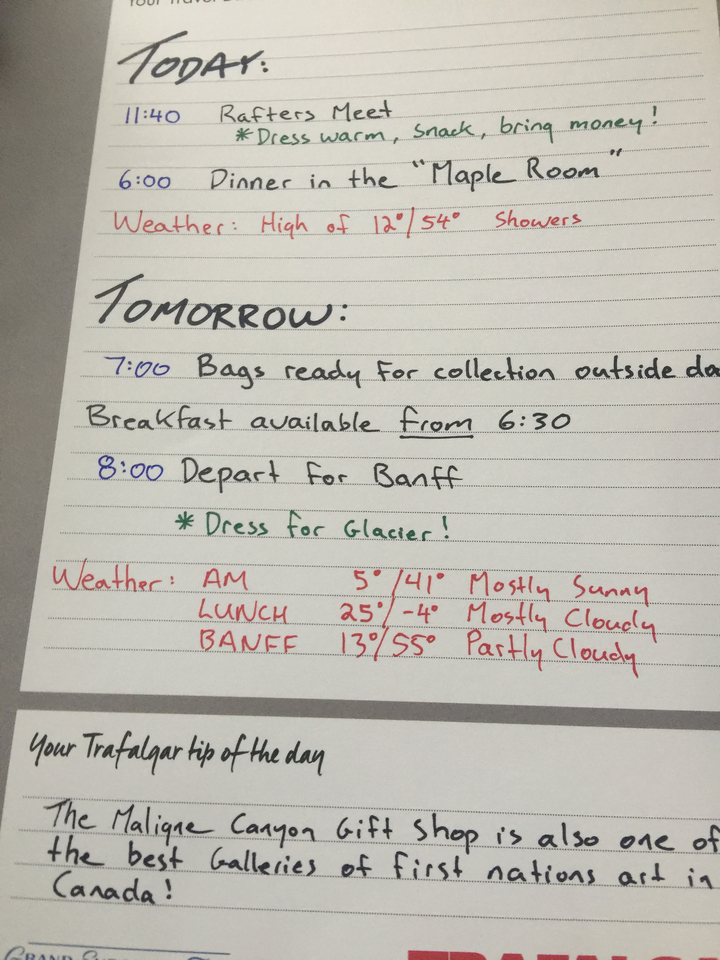 TODAY:
11:40 Rafters Meet
* Dress warm, snack, bring money!
6:00 Dinner in the "Maple Room"
Weather: High of 12°/54° Showers
TOMORROW:
7:00 Bags ready for collection outside
Breakfast available from 6:30
8:00 Depart for Banff
* Dress for Glacier!
Weather: AM 5°/41° Mostly Sunny
LUNCH 25°/-4° Mostly Cloudy
BANFF 13°/55° Partly Cloudy
Your Trafalgar tip of the day
The Maligne Canyon Gift Shop is also one of
the best Galleries of first nations art in
Canada!